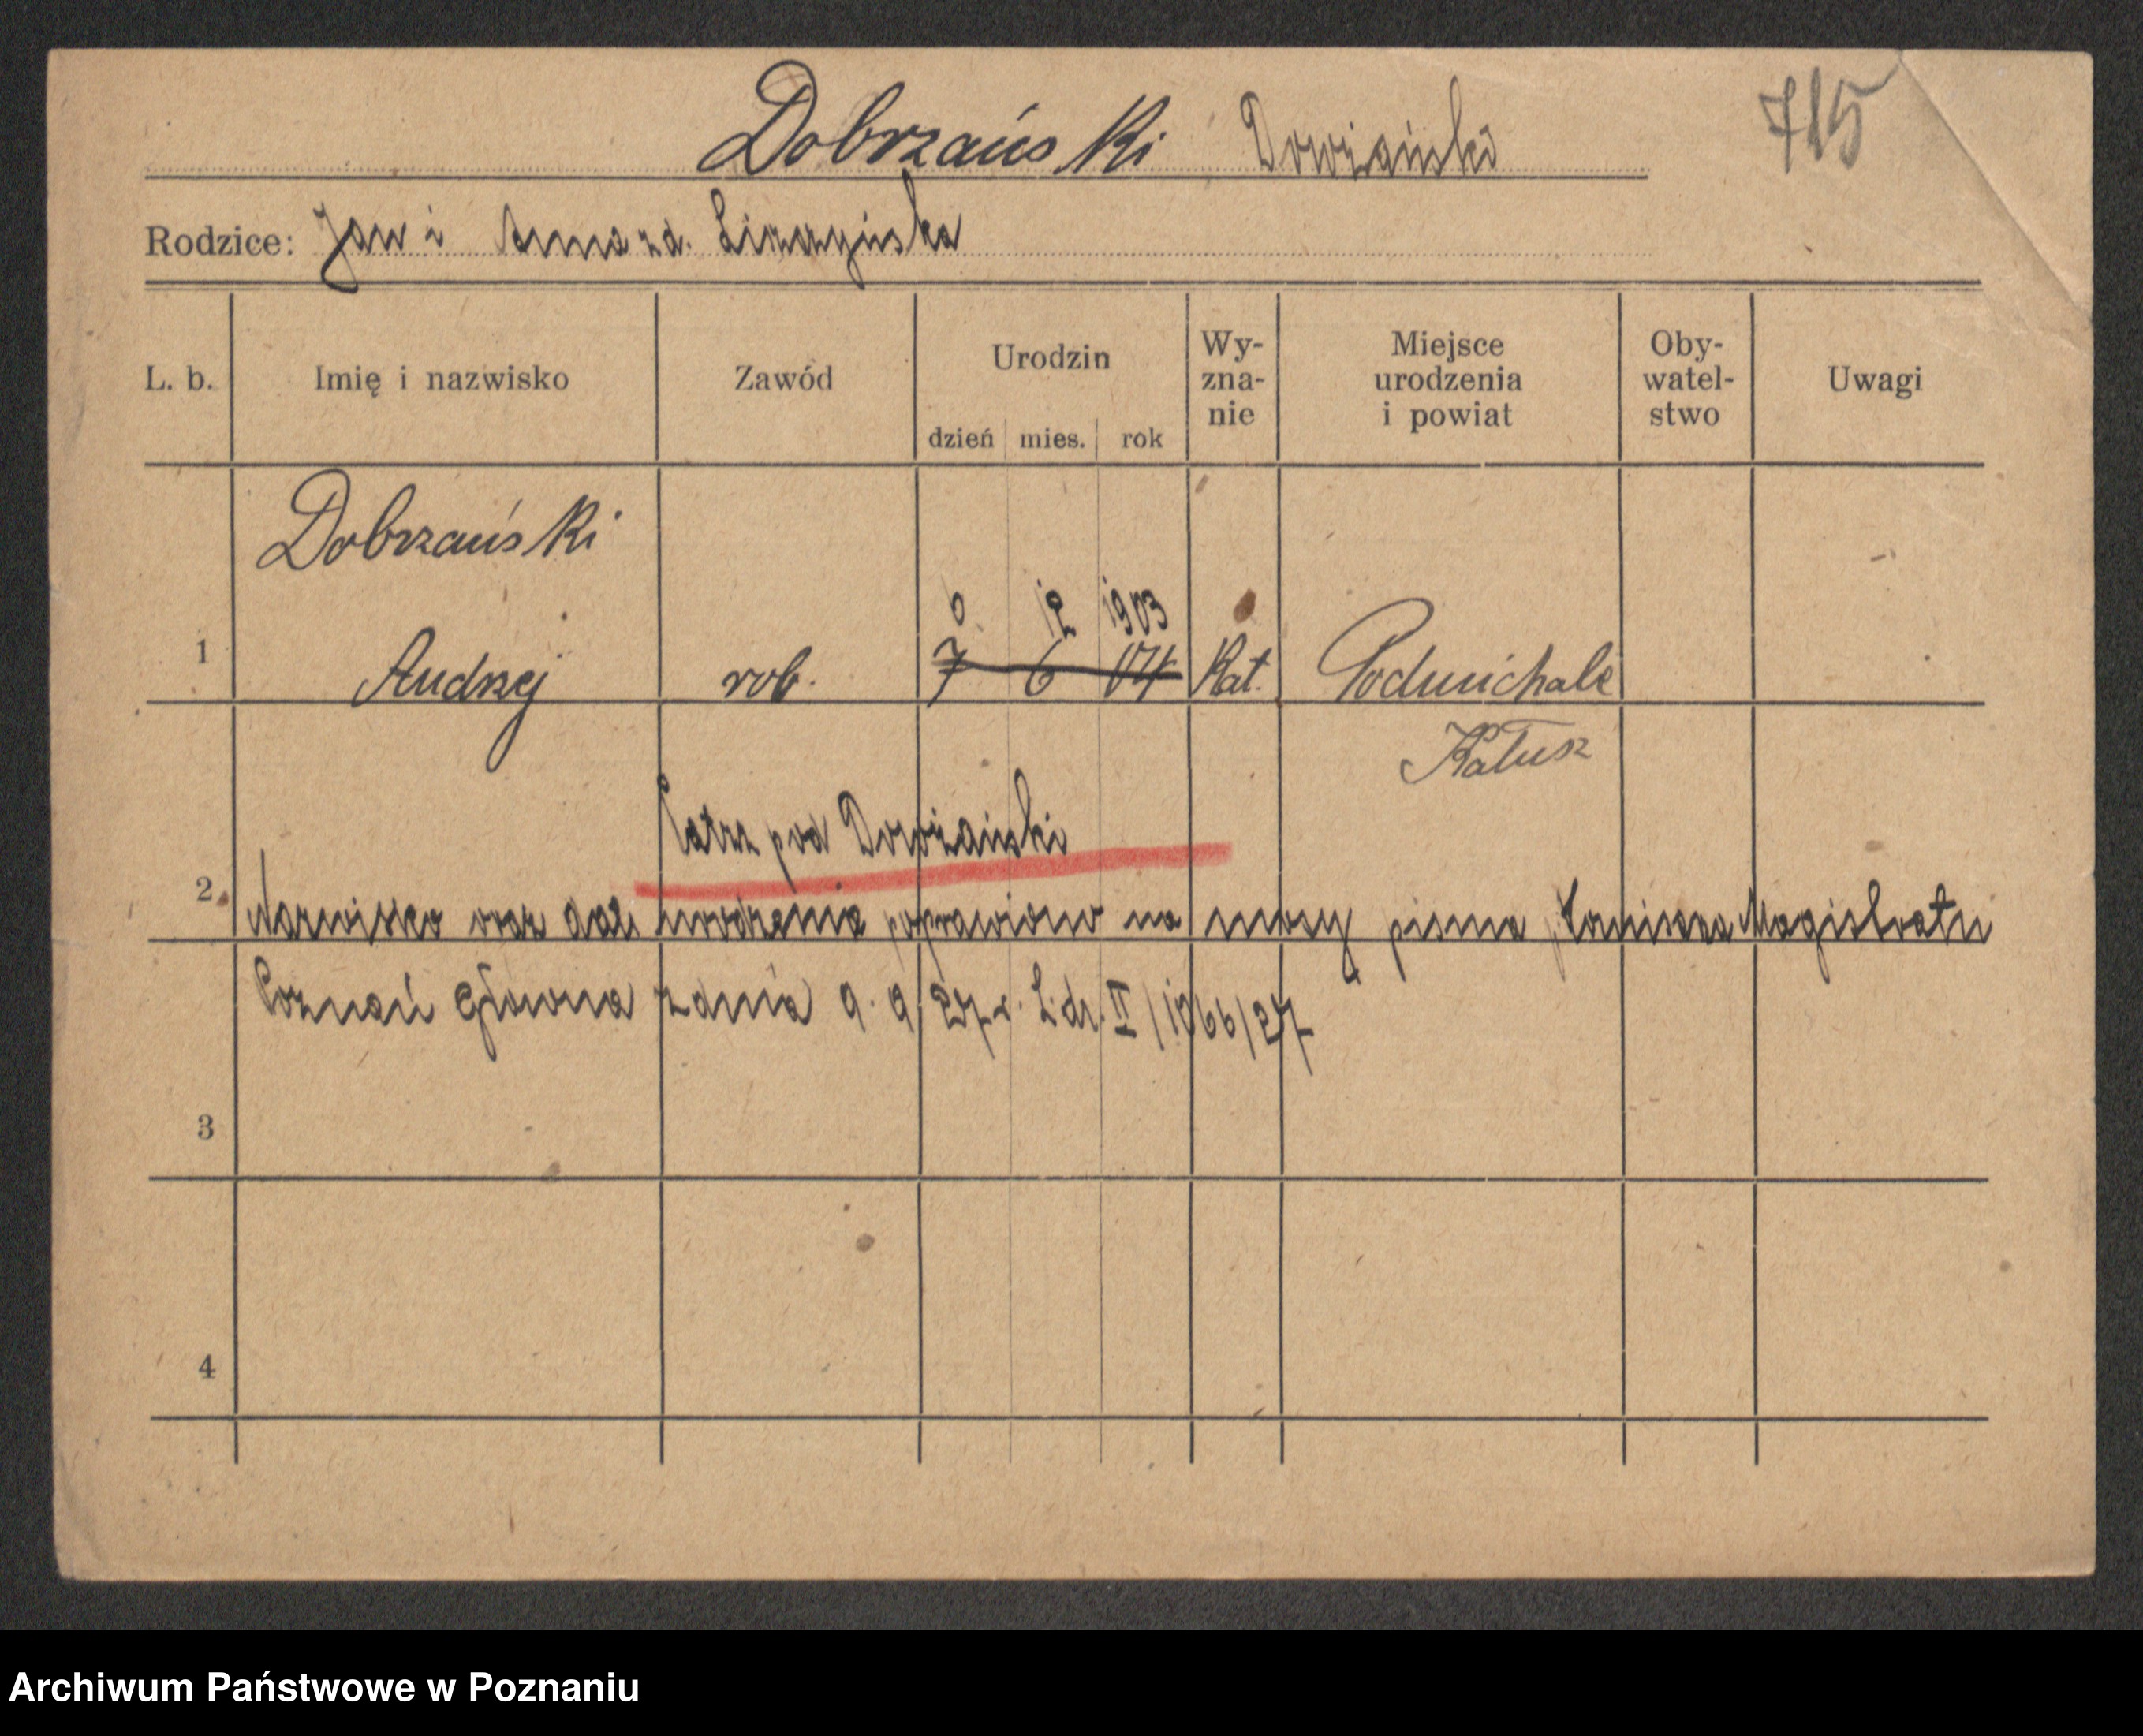 Dobrzański Dowżański 715
Rodzice: Jan i Anna zd.
L. b. Imię i nazwisko Zawód Urodzin dzień mies. rok Wy-zna-nie Miejsce urodzenia i powiat Oby-watel-stwo Uwagi
Dobrzański
6 12 1903
1 Andrzej rob. 7 6 04 Kat. Podmichale
Kałusz
Patrz pod Dowżański
2 Nazwisko oraz datę urodzenia poprawiono na mocy pisma Magistratu
Poznań Główna z dnia 9. 9. 27 r. L.dz. II/1066/27
3
4
Archiwum Państwowe w Poznaniu